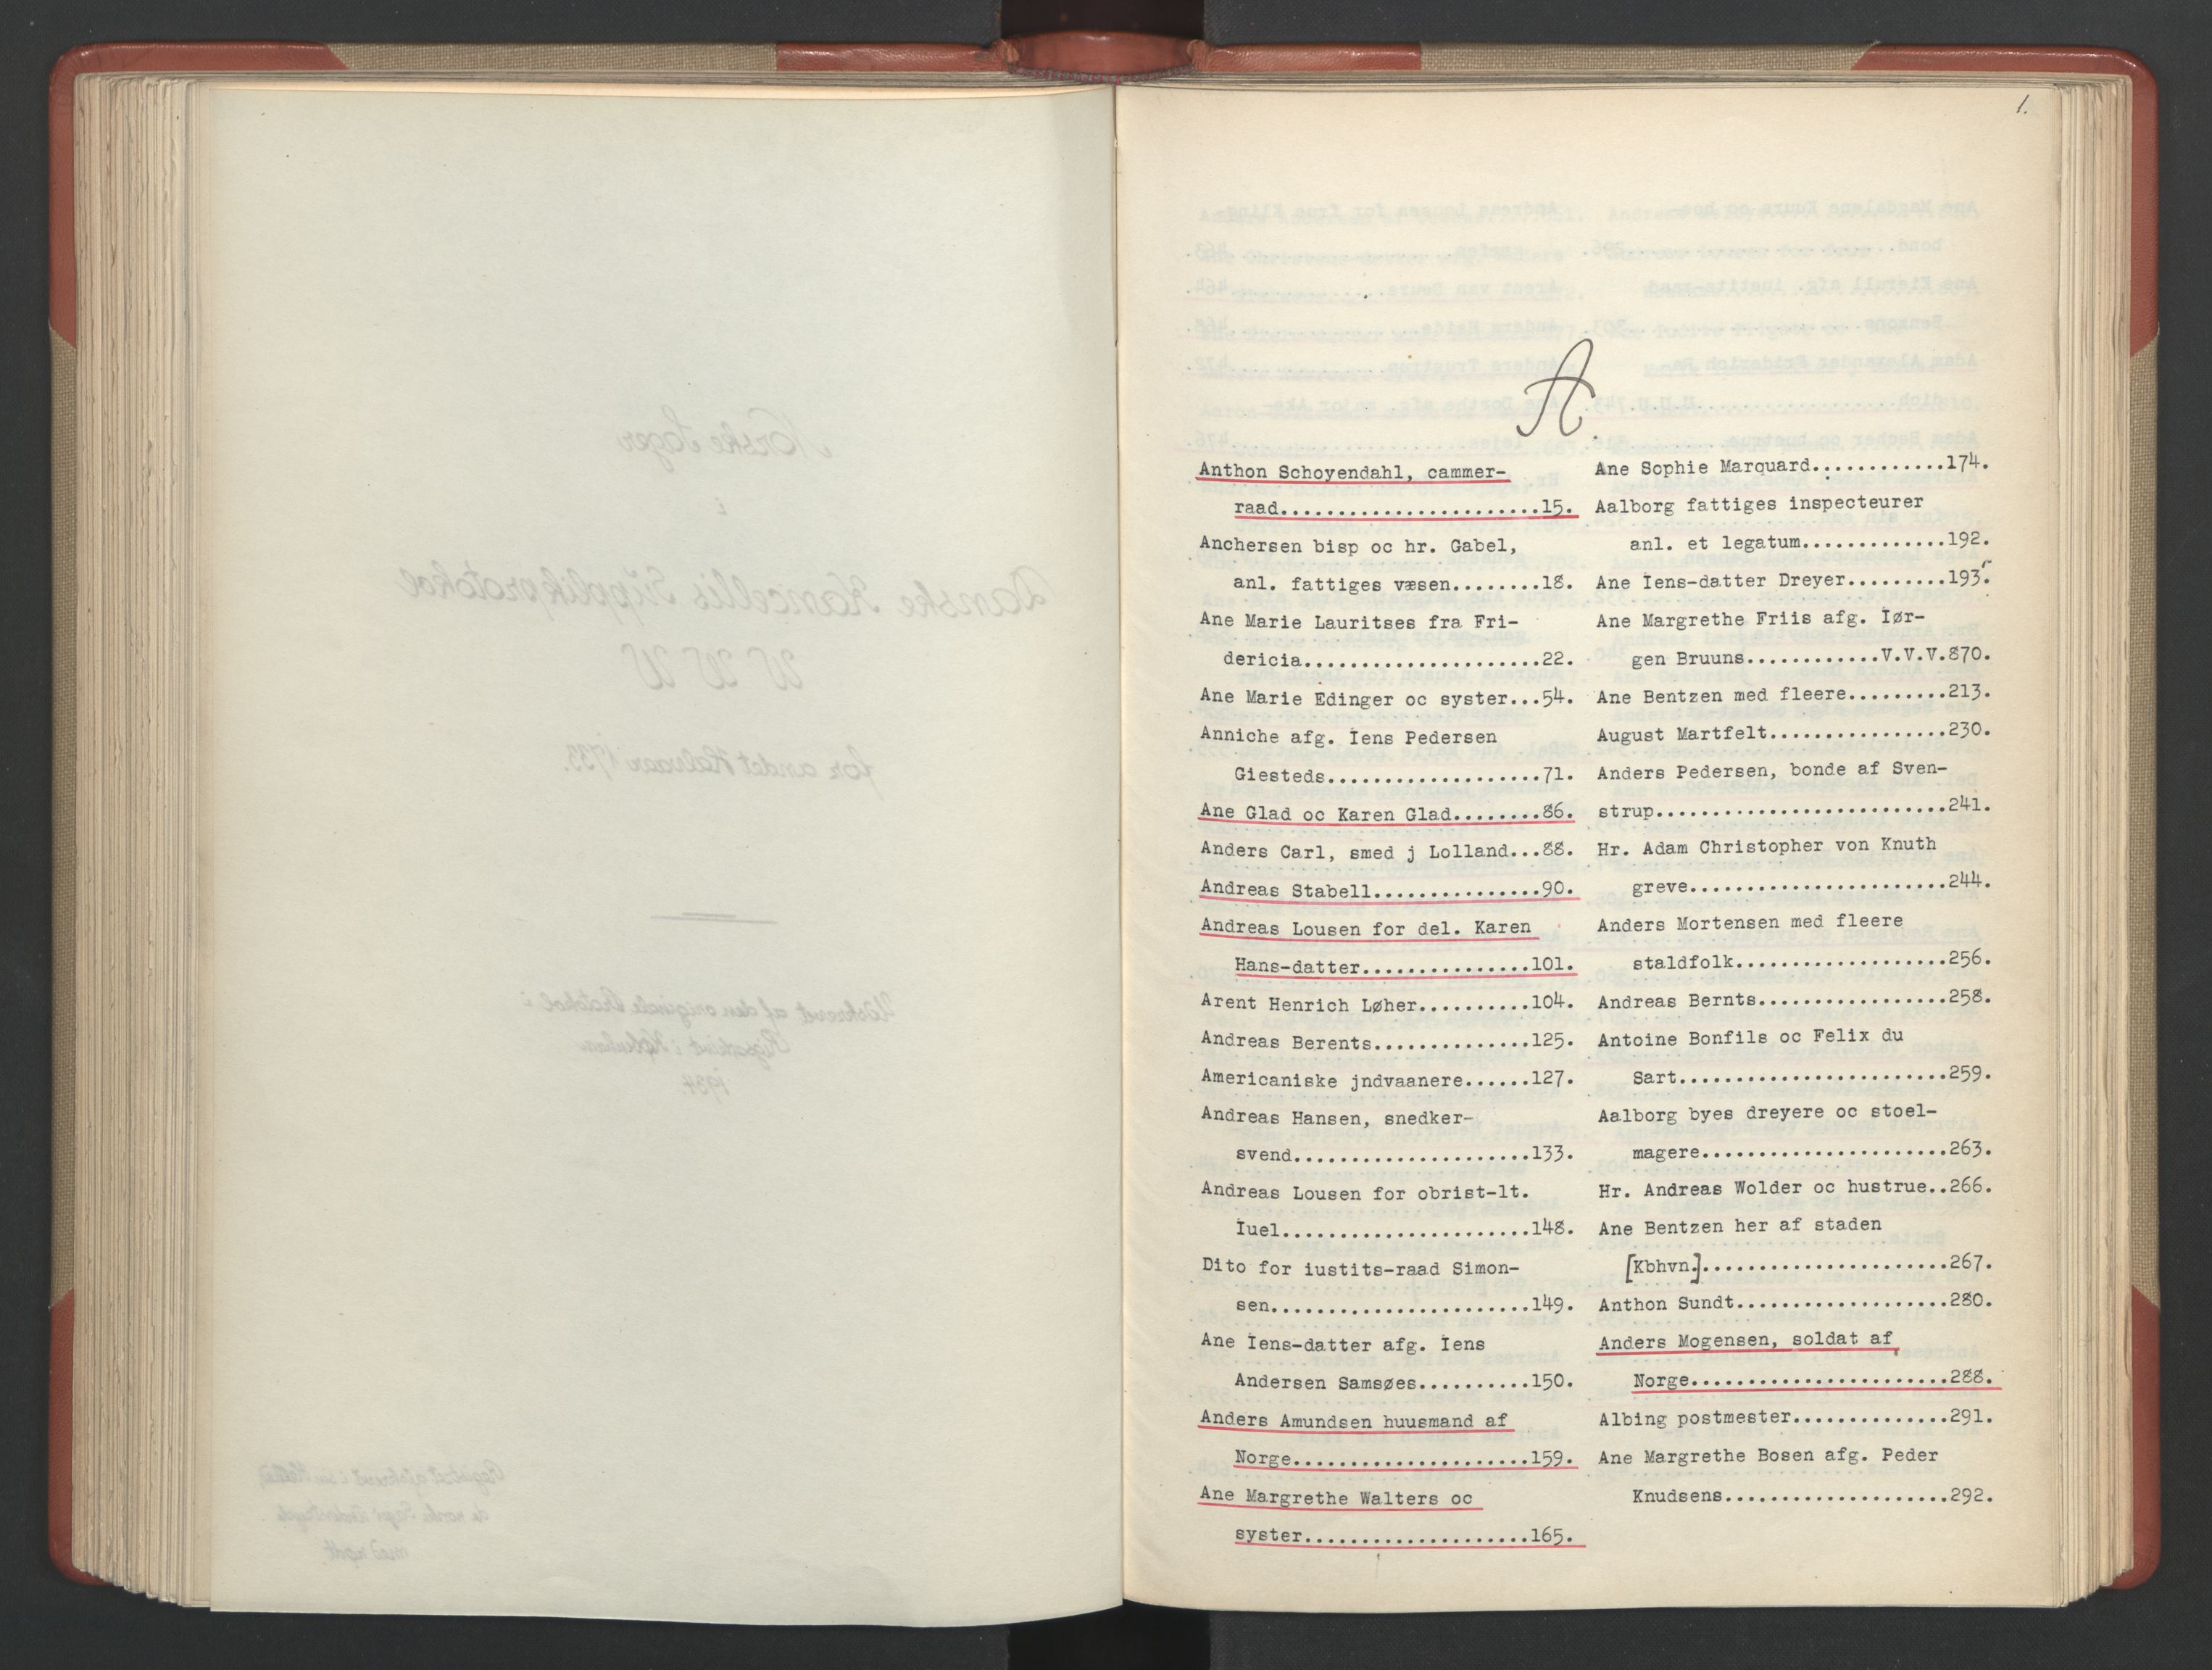 1.
A.
Anthon Schoyendahl, cammer-
raad.......................15.
Anchersen bisp oc hr. Gabel,
anl. fattiges væsen........18.
Ane Marie Lauritses fra Fri-
dericia.....................22.
Ane Marie Edinger oc syster...54.
Anniche afg. Iens Pedersen
Giesteds...................71.
Ane Glad oc Karen Glad........86.
Anders Carl, smed j Lolland...88.
Andreas Stabell...............90.
Andreas Lousen for del. Karen
Hans-datter...............101.
Arent Henrich Løher..........104.
Andreas Berents..............125.
Americaniske jndvaanere......127.
Andreas Hansen, snedker-
svend.....................133.
Andreas Lousen for obrist-lt.
Iuel......................148.
Dito for iustits-raad Simon-
sen.......................149.
Ane Iens-datter afg. Iens
Andersen Samsøes..........150.
Anders Amundsen huusmand af
Norge.....................159.
Ane Margrethe Walters oc
syster....................165.
Ane Sophie Marquard............174.
Aalborg fattiges inspecteurer
anl. et legatum.............192.
Ane Iens-datter Dreyer.........193.
Ane Margrethe Friis afg. Iør-
gen Bruuns............V.V.V.870.
Ane Bentzen med fleere.........213.
August Martfelt................230.
Anders Pedersen, bonde af Sven-
strup..........................241.
Hr. Adam Christopher von Knuth
greve.......................244.
Anders Mortensen med fleere
staldfolk...................256.
Andreas Bernts.................258.
Antoine Bonfils oc Felix du
Sart........................259.
Aalborg byes dreyere oc stoel-
magere......................263.
Hr. Andreas Wolder oc hustrue..266.
Ane Bentzen her af staden
[Kbhvn.]......................267.
Anthon Sundt...................280.
Anders Mogensen, soldat af
Norge.......................288.
Albing postmester..............291.
Ane Margrethe Bosen afg. Peder
Knudsens....................292.